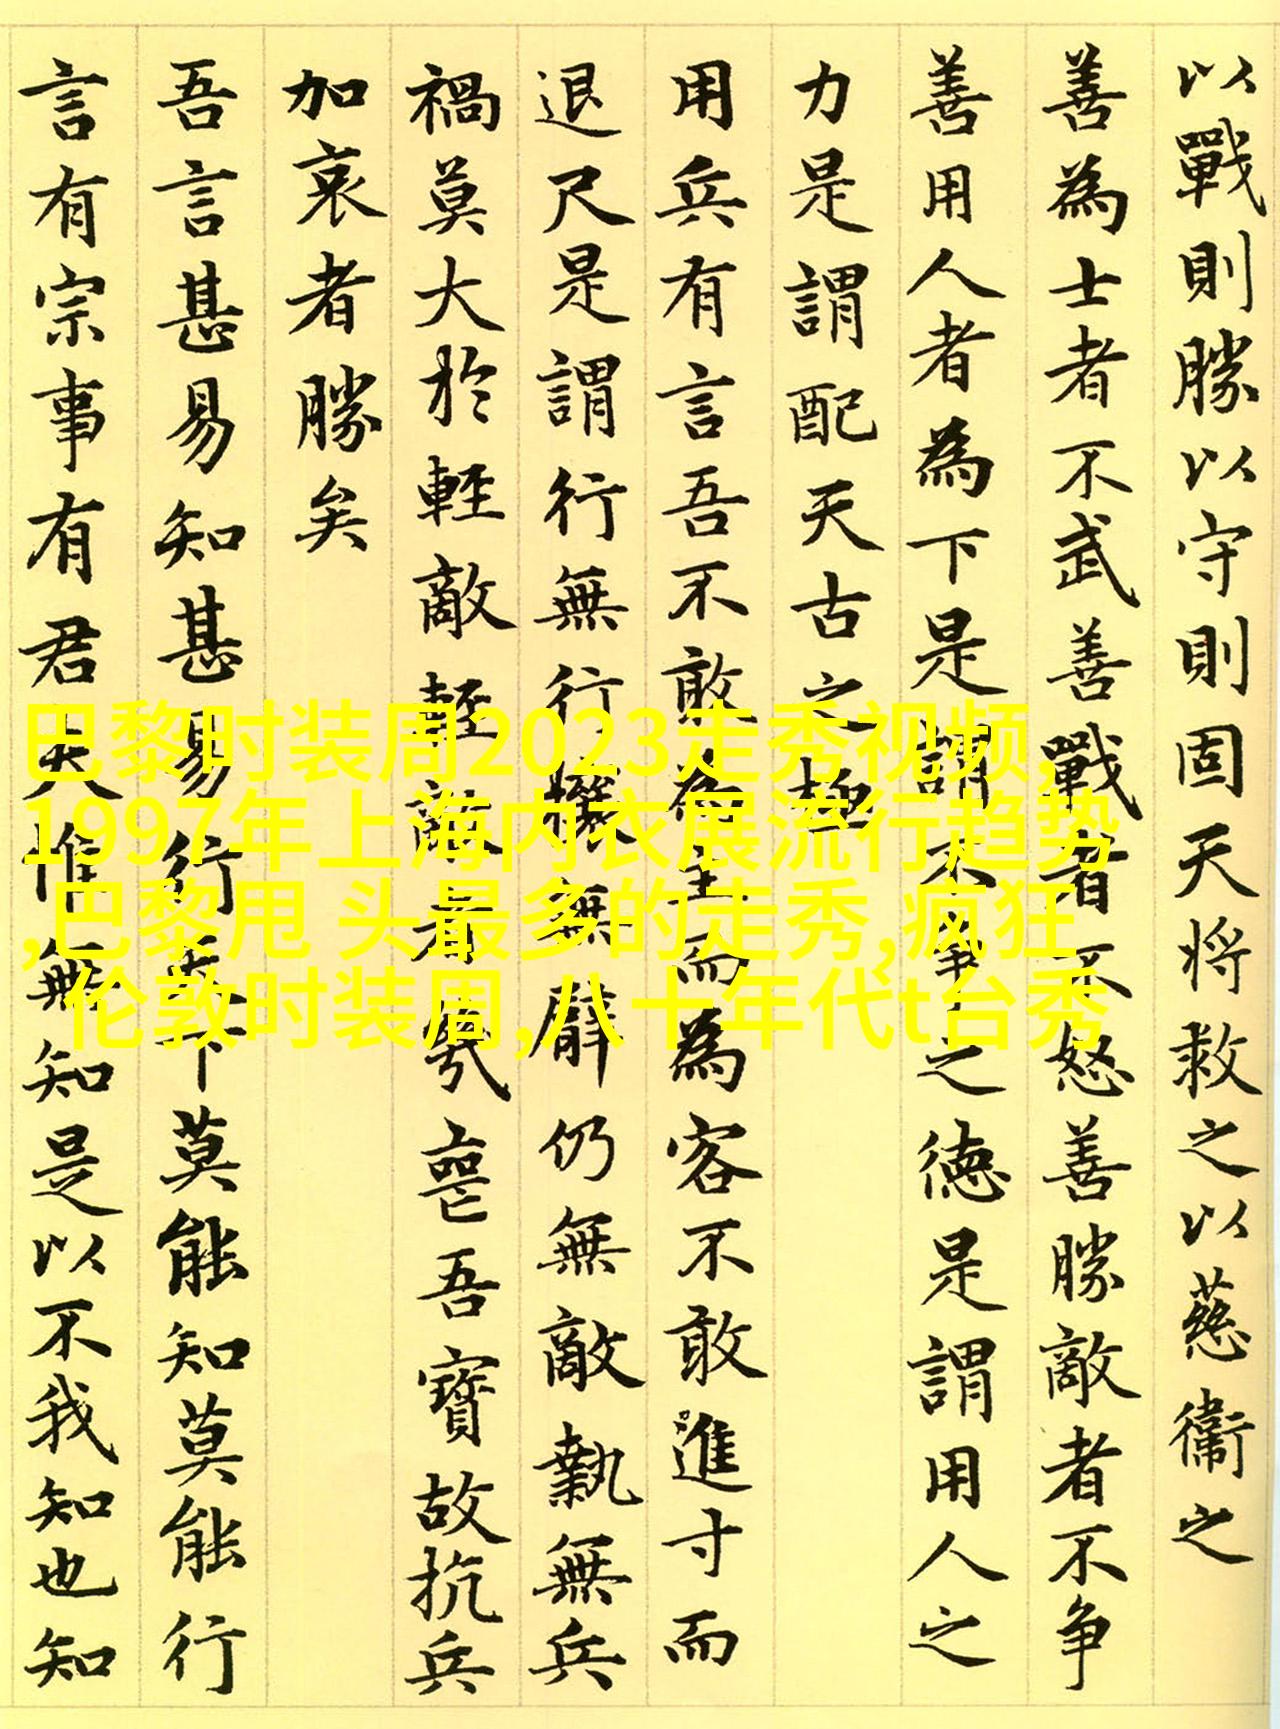 以戰則勝以守則固天將救之以慈衞之
善為士者不武善戰者不怒善勝敵者不争
善用人者為下是謂不争之德是謂用人之
力是謂配天古之極
用兵有言吾不敢為主而為客不敢進寸而
退尺是謂行無行攘無臂仍無敵執無兵
禍莫大於輕敵輕敵者幾喪吾寶故抗兵
加哀者勝矣
吾言甚易知甚易行天下莫能知莫能行
言有宗事有君夫惟無知是以不我知也知
巴黎时装周2023走秀视频,
1997年上海内衣展流行趋势
,巴黎甩 头最多的走秀,疯狂
伦敦时装周,八十年代t台秀